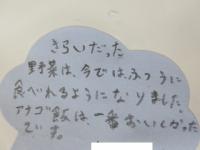 きらいだった
野菜は、今ではふつうに
食べれるようになりました。
アナゴ飯は、一番おいしかった
です。